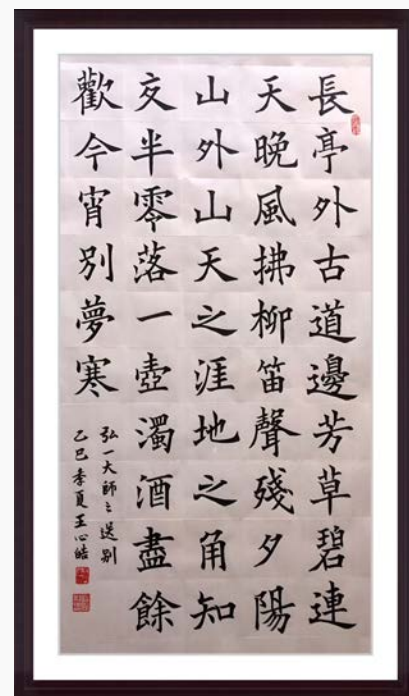 長亭外古道邊芳草碧連
天晚風拂柳笛聲殘夕陽
山外山天之涯地之角知
交半零落一壺濁酒盡餘
歡今宵別夢寒
弘一大師之送别
乙巳季夏王心皓